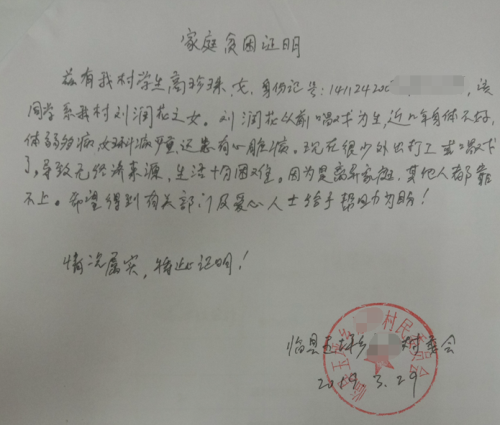 家庭贫困证明
兹有我村学生高珍珠,女,身份证号:14112420
同学系我村刘润花之女。刘润花以前唱戏为生,近几年身体不好,
体弱多病,妇科病严重,还患有心脏病。现在很少外出打工或唱戏
了,导致无经济来源,生活十分困难。因为是离异家庭,其他人都靠
不上。希望得到有关部门及爱心人士给予帮助为盼!
情况属实,特此证明!
临县玉坪乡 村委会
2019.3.29
村民委员会